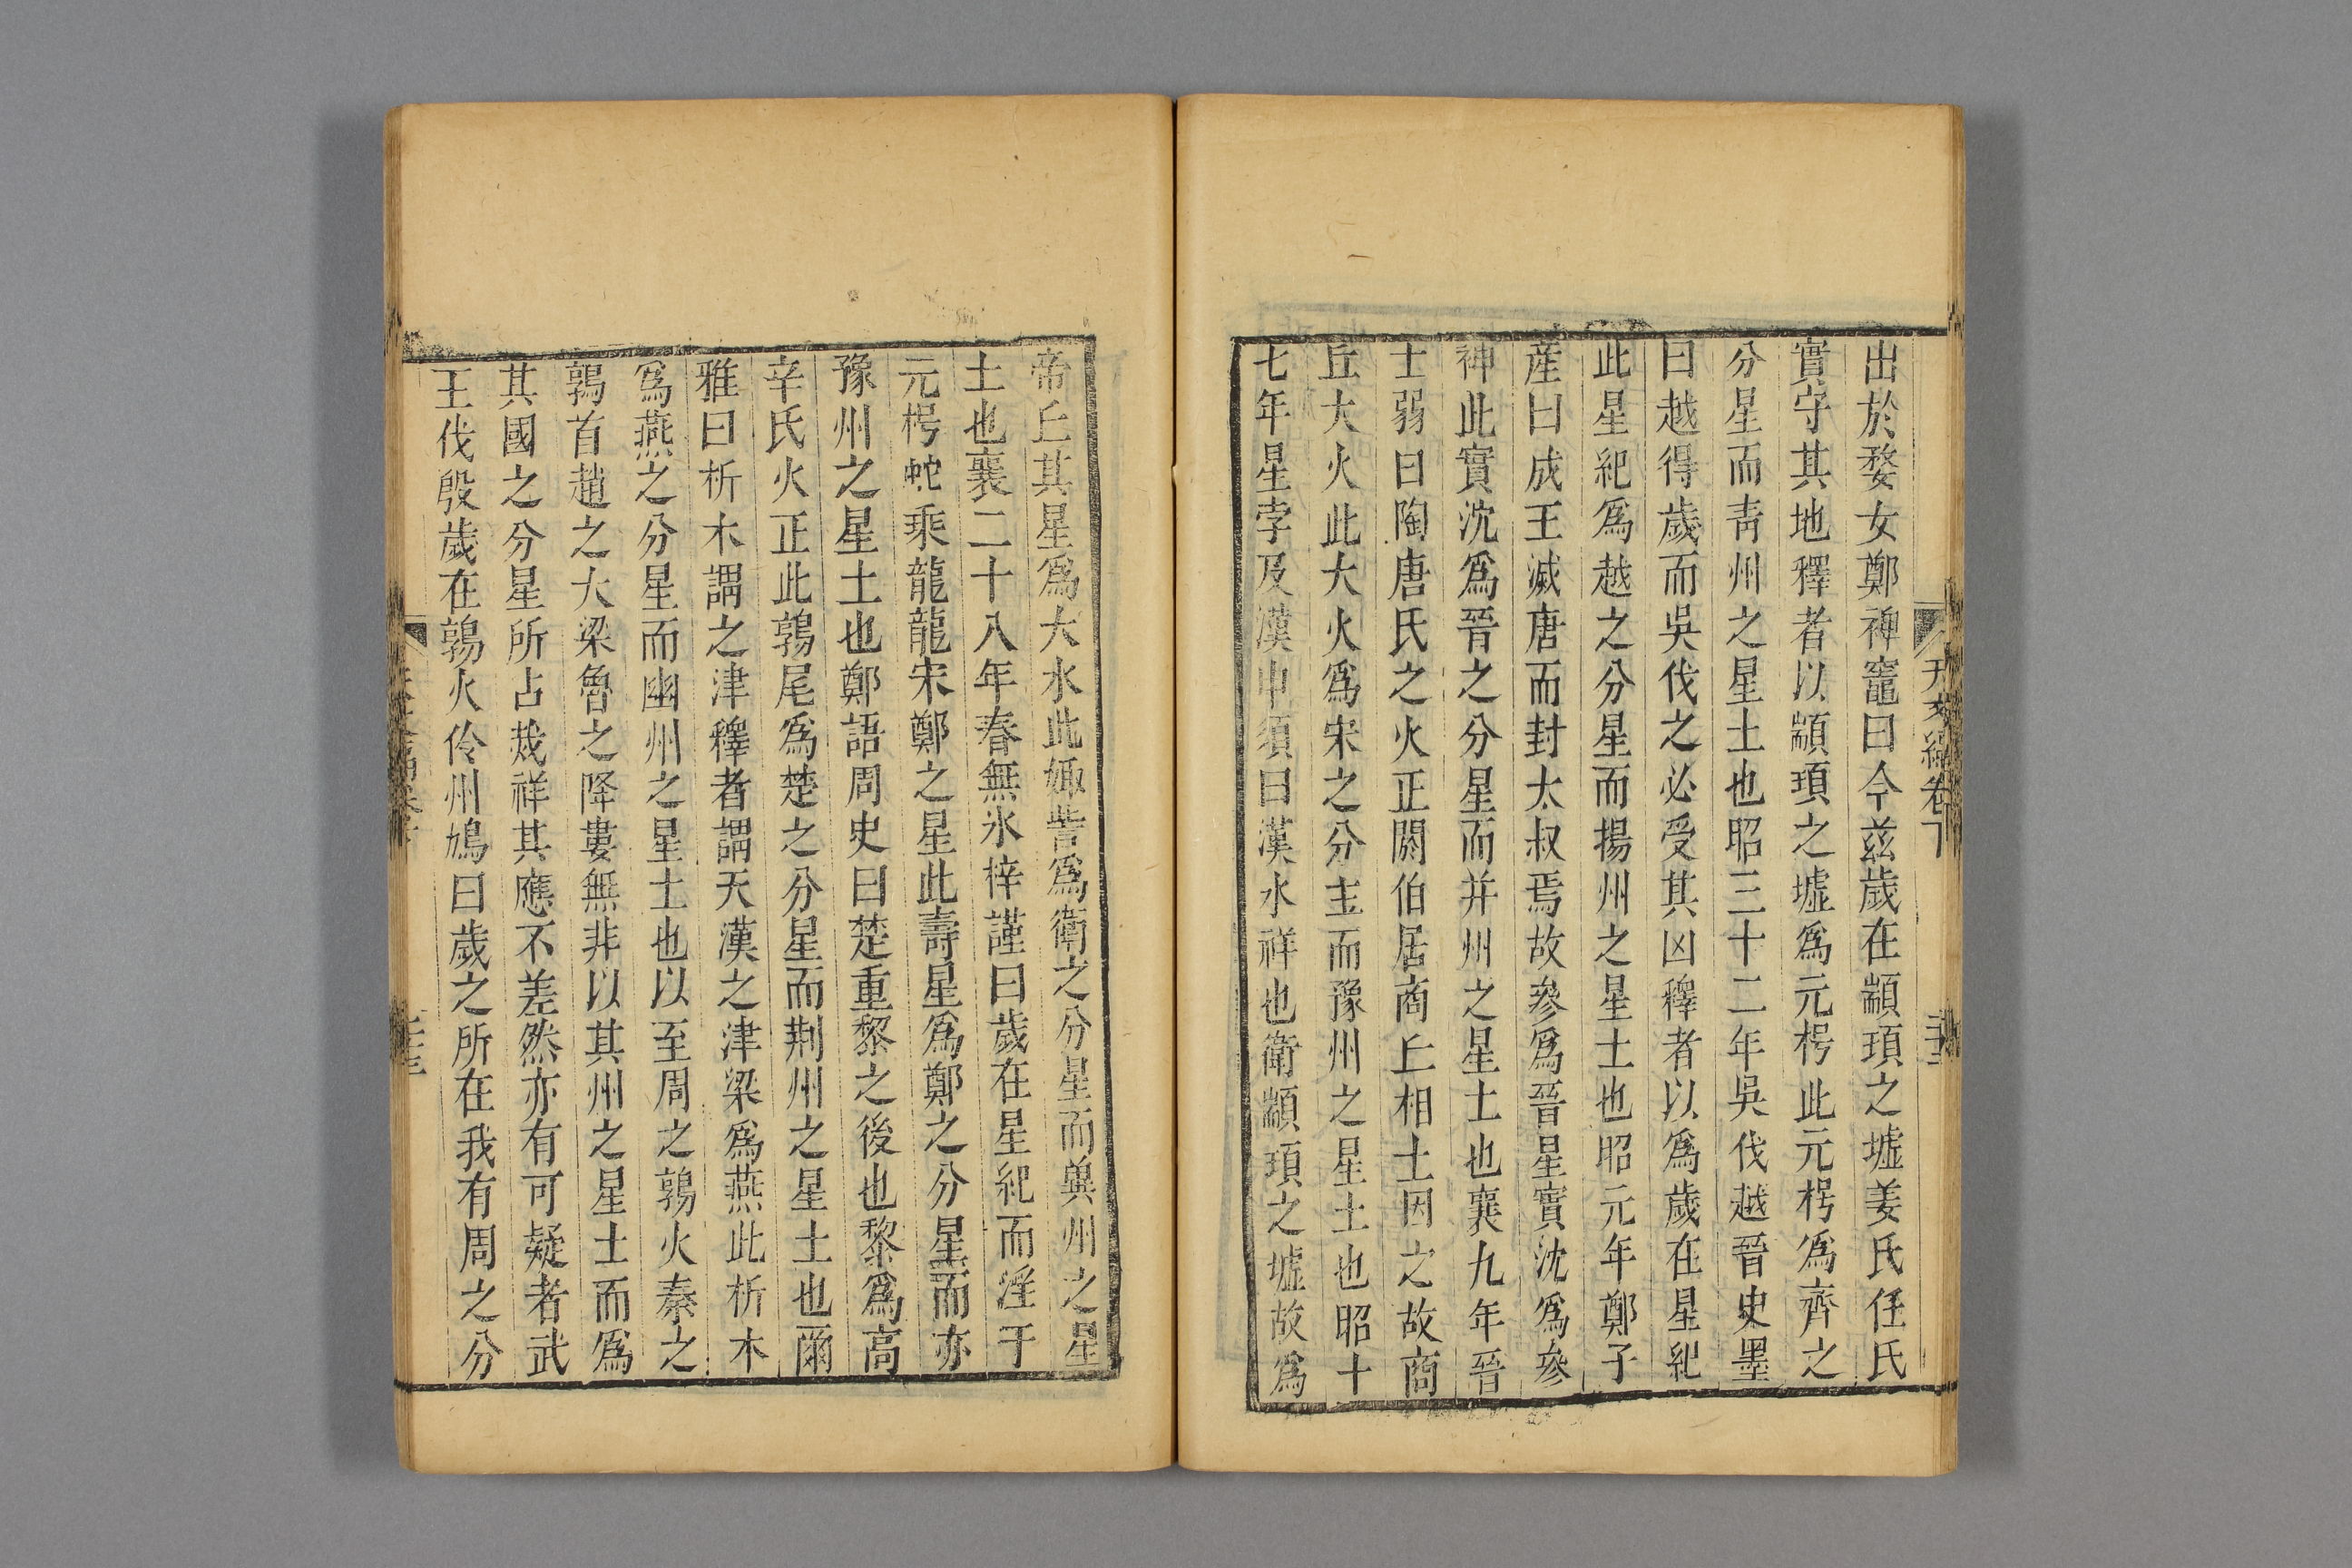 出於婺女鄭禆竈曰今茲歲在顓頊之墟姜氏任氏
實守其地釋者以顓頊之墟爲元枵此元枵爲齊之
分星而靑州之星土也昭三十二年吳伐越晉史墨
曰越得歲而吳伐之必受其凶釋者以爲歲在星紀
此星紀爲越之分星而揚州之星土也昭元年鄭子
産曰成王滅唐而封太叔焉故參爲晉星實沈爲參
神此實沈爲晉之分星而并州之星土也襄九年晉
士弱曰陶唐氏之火正閼伯居商丘相土因之故商
丘大火此大火爲宋之分主而豫州之星土也昭十
七年星孛及漢申須曰漢水祥也衛顓頊之墟故爲
帝丘其星爲大水此娵訾爲衛之分星而兾州之星
土也襄二十八年春無氷梓謹曰歲在星紀而淫于
元枵蛇乘龍龍宋鄭之星此壽星爲鄭之分星而亦
豫州之星土也鄭語周史曰楚重黎之後也黎爲高
辛氏火正此鶉尾爲楚之分星而荆州之星土也爾
雅曰析木謂之津釋者謂天漢之津梁爲燕此析木
爲燕之分星而幽州之星土也以至周之鶉火秦之
鶉首趙之大梁魯之降婁無非以其州之星土而爲
其國之分星所占烖祥其應不差然亦有可疑者武
王伐殷歲在鶉火伶州鳩曰歲之所在我有周之分